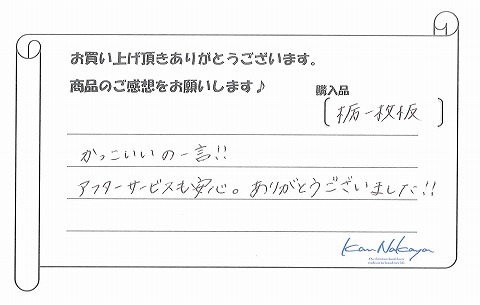 お買い上げ頂きありがとうございます。
商品のご感想をお願いします♪
購入品
[栃一枚板]
かっこいいの一言!!
アフターサービスも安心。ありがとうございました!!
Kan Nakaya